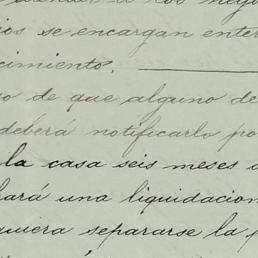 a los nego
ios se encargan enter
cimiento.
o de que alguno de
deberá notificarlo po
la casa seis meses a
hará una liquidacion
quiera separarse la